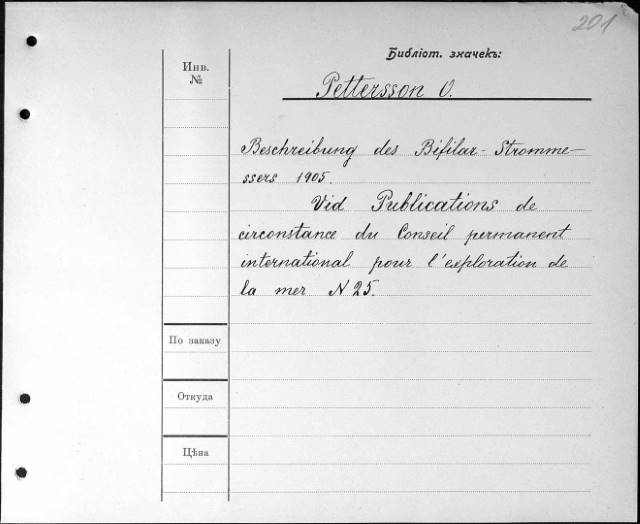 201
Библіот. значекъ:
Инв.
№
Pettersson O.
Beschreibung des Bifilar-Stromme-
ssers 1905.
Vid Publications de
circonstance du Conseil permanent
international pour l'exploration de
la mer N 25.
По заказу
Откуда
Цѣна